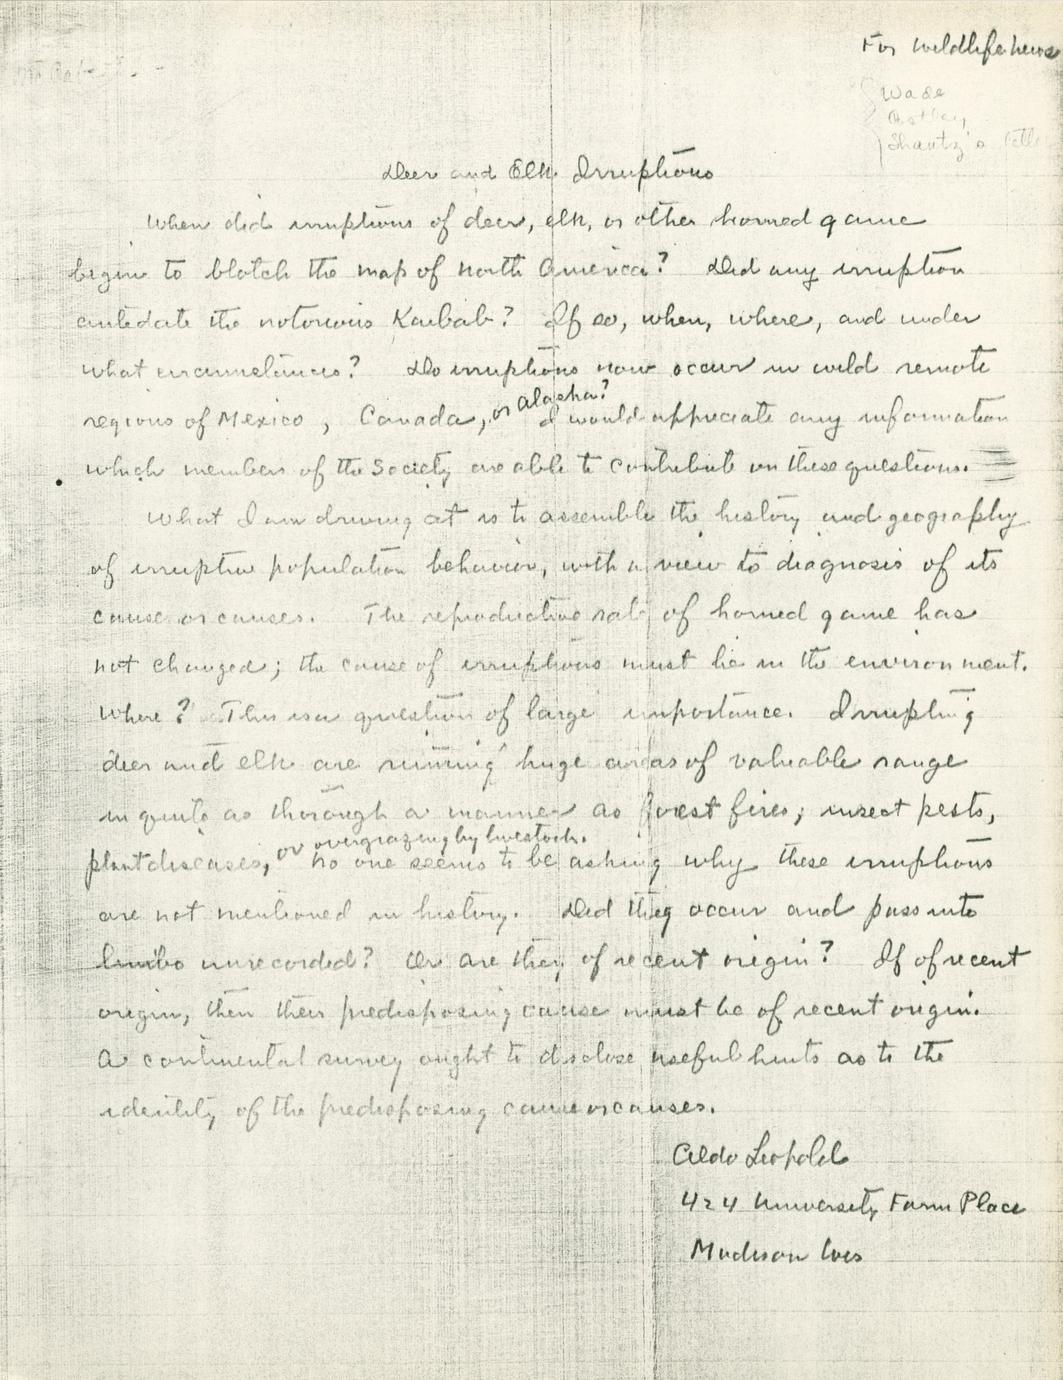 For Wildlife News
Wade
Shantz's
Deer and Elk Irruptions
When did irruptions of deer, elk, or other horned game
begin to blotch the map of North America? Did any irruption
antedate the notorious Kaibab? If so, when, where, and under
what circumstances? Do irruptions now occur in wild remote
regions of Mexico, Canada, or Alaska? I would appreciate any information
which members of the Society are able to contribute on these questions.
What I am driving at is to assemble the history and geography
of irruptive population behavior, with a view to diagnosis of its
cause or causes. The reproductive rate of horned game has
not changed; the cause of irruptions must lie in the environment.
Where? This is a question of large importance. Irrupting
deer and elk are ruining huge areas of valuable range
in quite as thorough a manner as forest fires, insect pests,
plant diseases, or overgrazing by livestock. No one seems to be asking why these irruptions
are not mentioned in history. Did they occur and pass into
limbo unrecorded? Or are they of recent origin? If of recent
origin, then their predisposing cause must be of recent origin.
A continental survey ought to disclose useful hints as to the
identity of the predisposing cause or causes.
Aldo Leopold
424 University Farm Place
Madison Wis